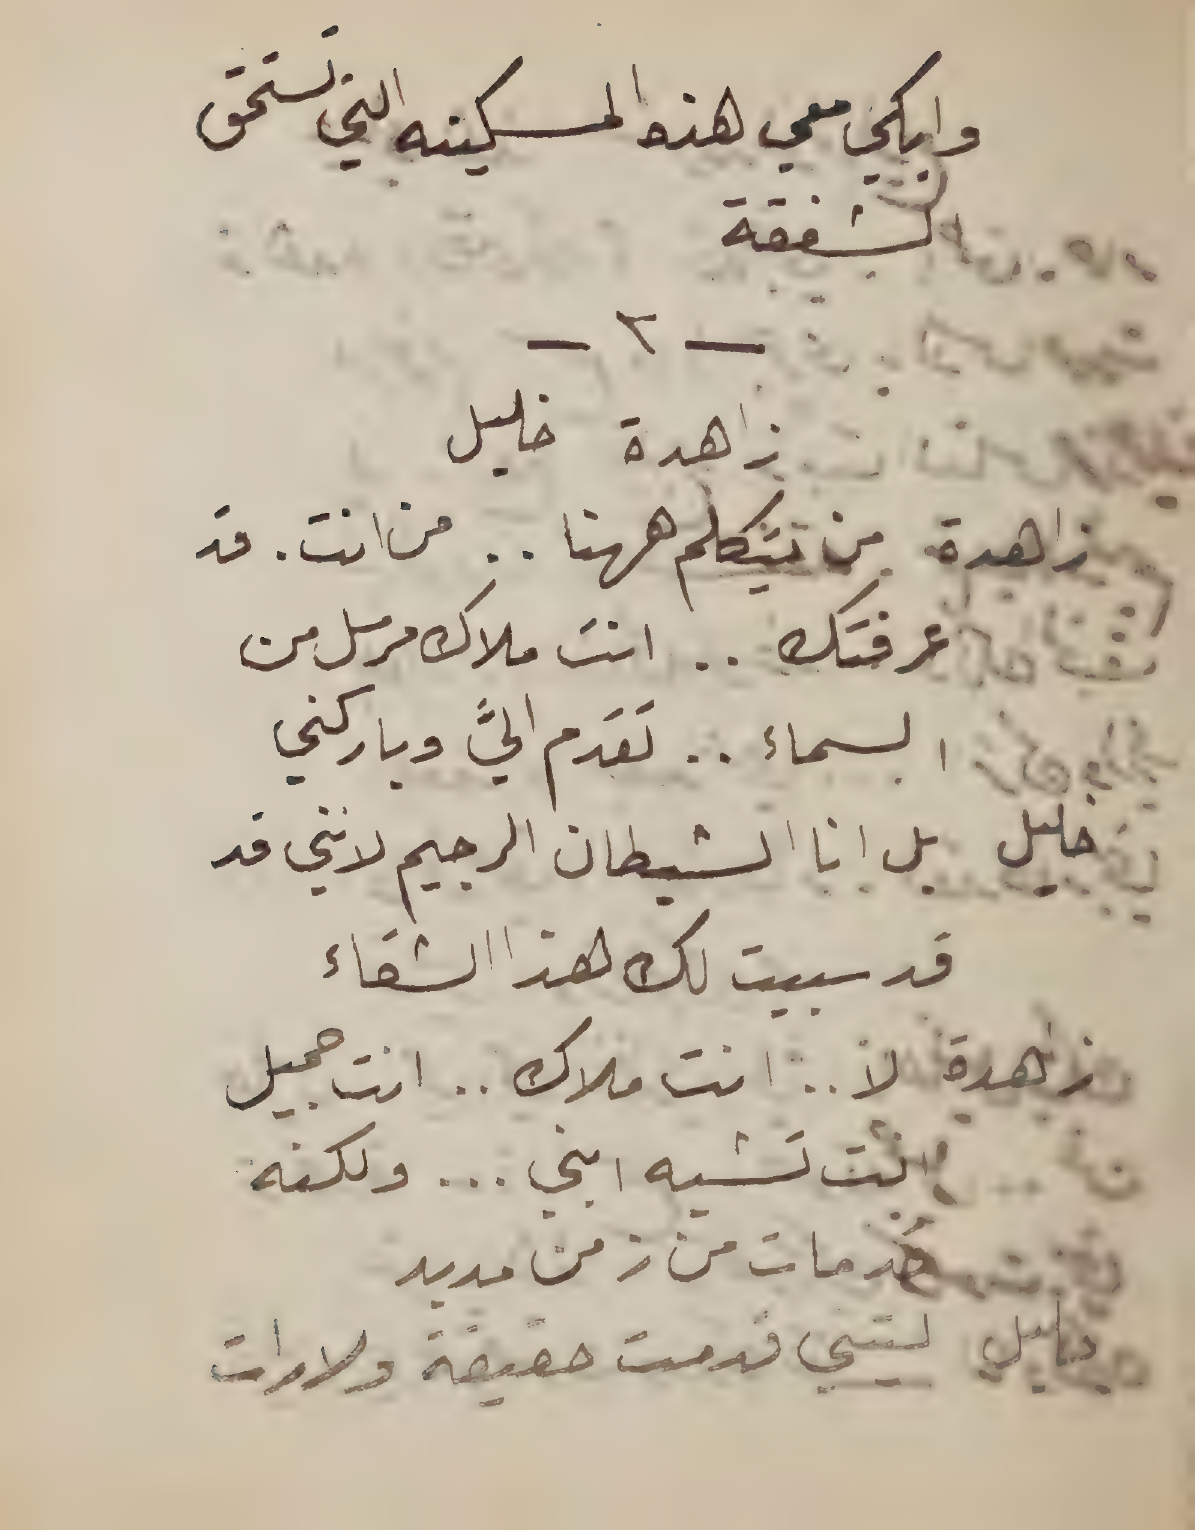 وابكي معي هذه المسكينه التي تستحق
الشفقة
— ٢ —
زاهدة خليل
زاهدة من يتكلم ههنا .. من انت . قد
عرفتك .. انت ملاك مرسل من
السماء .. تقدم اليَّ وباركني
خليل بل انا الشيطان الرجيم لانني قد
قد سببت لك هذا الشقاء
زاهدة لا .. انت ملاك .. انت جميل
انت تشبه ابني ... ولكنه
قد مات من زمن مديد
خليل ليتني قد مت حقيقة ولا رات